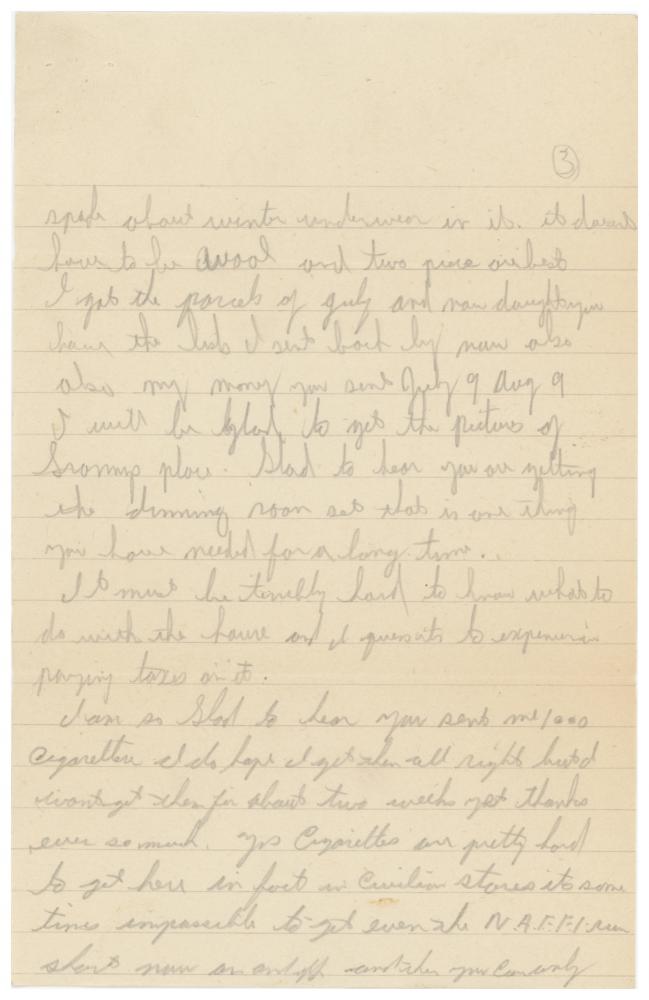 3
spoke about winter underwear in it. it doesnt
have to be wool and two piece are best
I got the parcels of July and now
have the list I sent back by now also
also my money you sent July 9 Aug 9
I will be glad to get the pictures of
place. Glad to hear you are getting
the dinning room set that is one thing
you have needed for a long time.
It must be terribly hard to know what to
do with the house and I its to
paying taxes on it.
I am so Glad to hear you sent me 1000
Cigarettes I do hope I get them all right but I
wont get them for about two weeks yet thanks
ever so much. Yes Cigarettes are pretty hard
to get here in fact in Civilian stores its some
times impossible to get even the N.A.F.F.I. run
short now an and then you can only